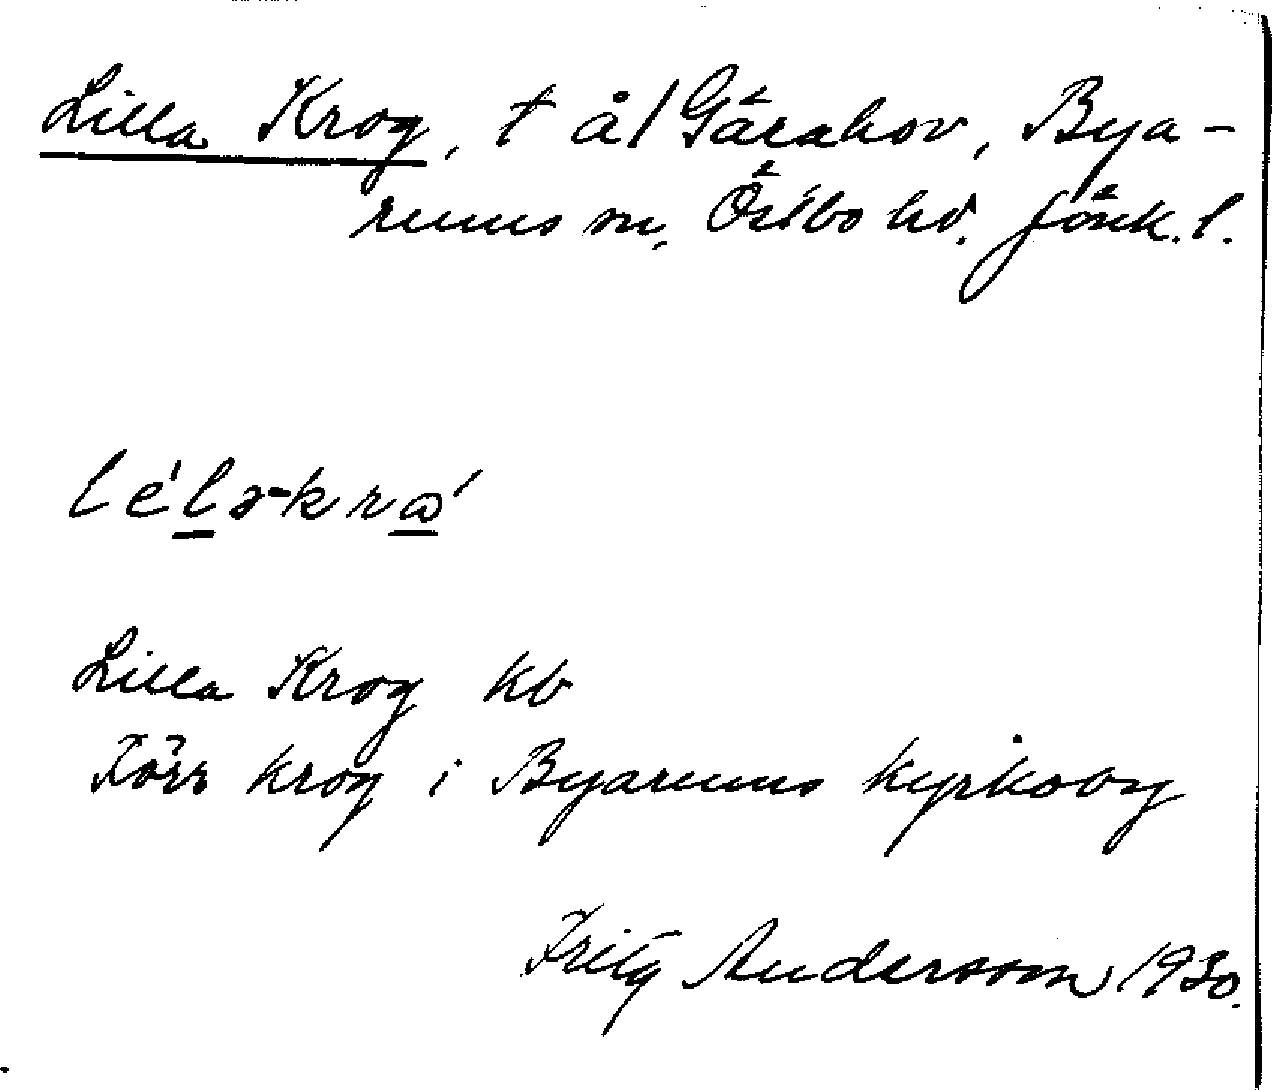 Lilla Krog, † å/Gärahov, Bya-
rums sn, Östbo hd. Jönk. l.
lé'lə-krɷ´
Lilla Krog kb
Förr krog i Byarums kyrkoby
Fritz Andersson 1930.